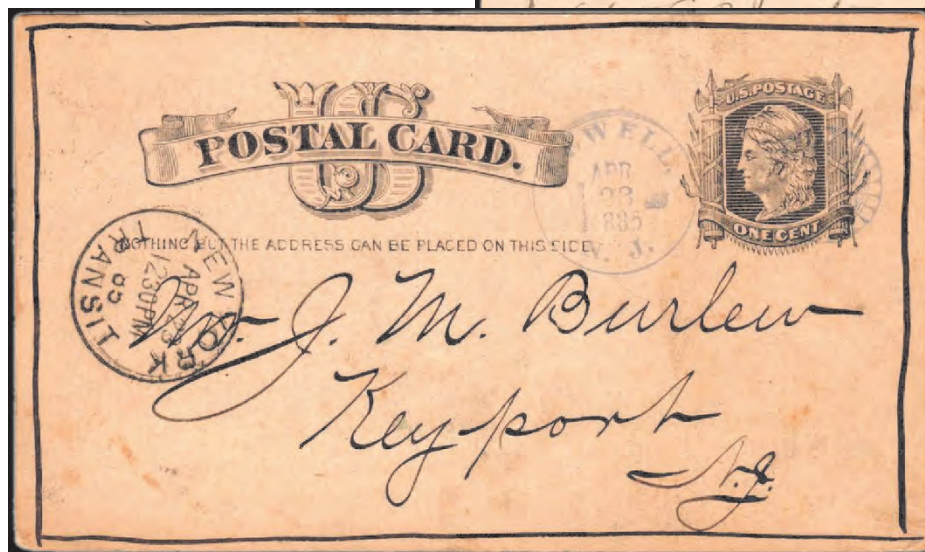 US
POSTAL CARD.
U.S. POSTAGE
ONE CENT
WELL,
APR
1885
N. J.
NOTHING BUT THE ADDRESS CAN BE PLACED ON THIS SIDE.
NEW YORK
APR 23
1230PM
85
TRANSIT
Mr. J. M. Burlew
Keyport
N.J.